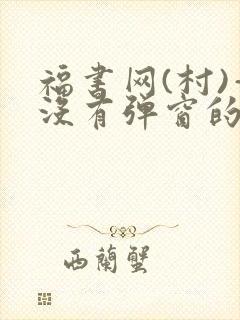 福書网(村)-
没有弹窗的
西蘭蟹